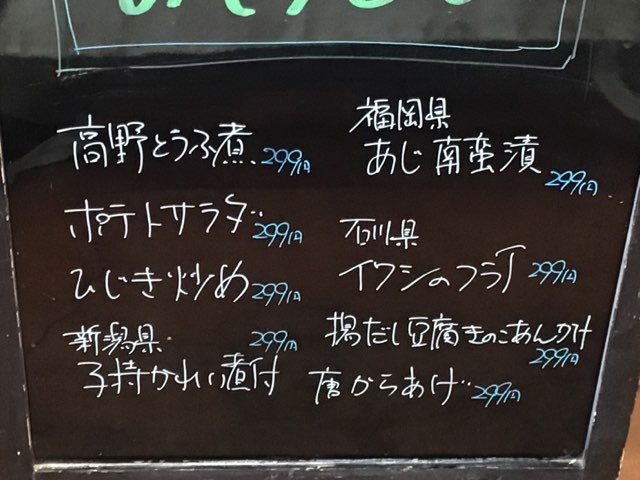 高野とうふ煮 299円
ポテトサラダ 299円
ひじき炒め 299円
新潟県 299円
子持かれい煮付
福岡県
あじ南蛮漬
299円
石川県
イワシのフライ 299円
揚だし豆腐きのこあんかけ
299円
唐からあげ 299円